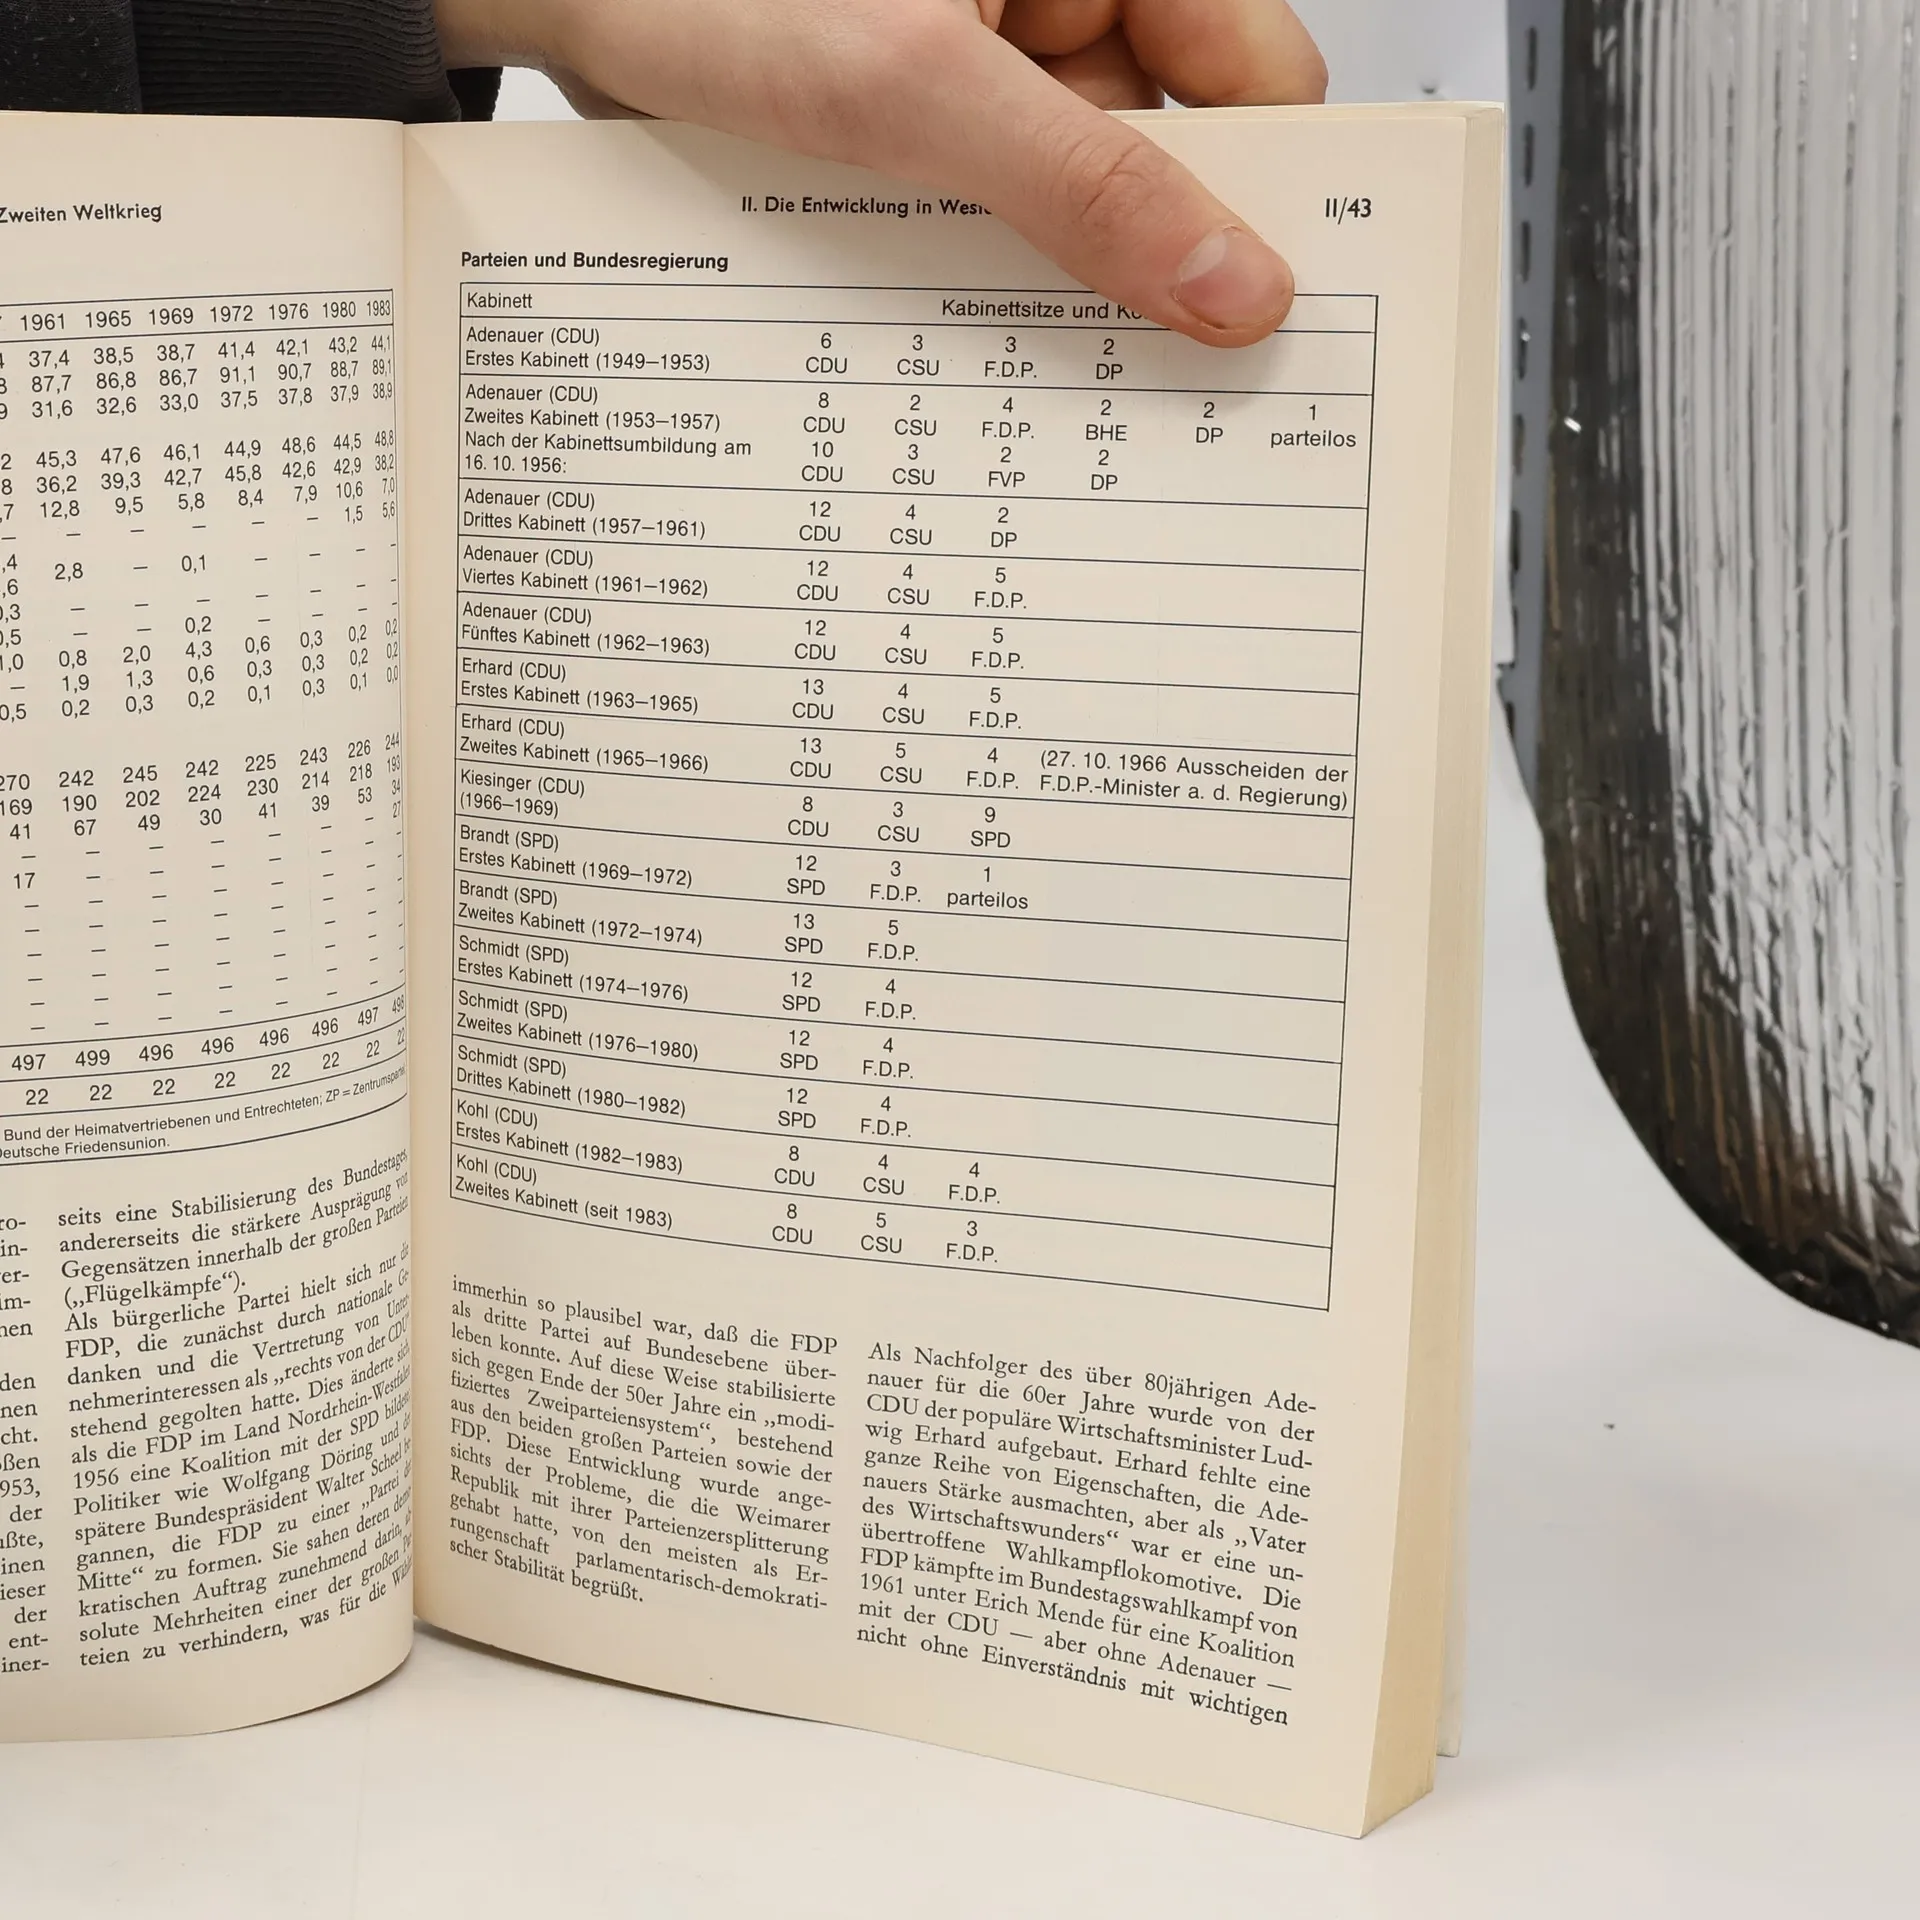 Zweiten Weltkrieg
1961 1965 1969 1972 1976 1980 1983
37,4 38,5 38,7 41,4 42,1 43,2 44,1
87,7 86,8 86,7 91,1 90,7 88,7 89,1
31,6 32,6 33,0 37,5 37,8 37,9 38,9
2 45,3 47,6 46,1 44,9 48,6 44,5 48,8
8 36,2 39,3 42,7 45,8 42,6 42,9 38,2
,7 12,8 9,5 5,8 8,4 7,9 10,6 7,0
— — — — — — 1,5 5,6
,4 2,8 — 0,1 — — — -
,6 — — — — — — -
0,3 — — 0,2 — — — -
0,5 0,8 2,0 4,3 0,6 0,3 0,2 0,2
1,0 1,9 1,3 0,6 0,3 0,3 0,2 0,2
— 0,2 0,3 0,2 0,1 0,3 0,1 0,0
0,5
270 242 245 242 225 243 226 244
169 190 202 224 230 214 218 193
41 67 49 30 41 39 53 34
— — — — — — — 27
17 — — — — — — -
497 499 496 496 496 496 497 498
22 22 22 22 22 22 22
Bund der Heimatvertriebenen und Entrechteten; ZP = Zentrumspartei
Deutsche Friedensunion.
ro-
in-
ver-
im-
nen
den
nen
cht.
oßen
953,
der
ußte,
inen
ieser
der
ent-
iner-
seits eine Stabilisierung des Bundestages,
andererseits die stärkere Ausprägung von
Gegensätzen innerhalb der großen Parteien
(„Flügelkämpfe“).
Als bürgerliche Partei hielt sich nur die
FDP, die zunächst durch nationale Ge-
danken und die Vertretung von Unter-
nehmerinteressen als „rechts von der CDU“
stehend gegolten hatte. Dies änderte sich,
als die FDP im Land Nordrhein-Westfalen
1956 eine Koalition mit der SPD bildete
Politiker wie Wolfgang Döring und der
spätere Bundespräsident Walter Scheel be-
gannen, die FDP zu einer „Partei der
Mitte“ zu formen. Sie sahen deren demo-
kratischen Auftrag zunehmend darin, ab-
solute Mehrheiten einer der großen Par-
teien zu verhindern, was für die Wähler
II. Die Entwicklung in West
II/43
Parteien und Bundesregierung
Kabinett Kabinettsitze und Ko
Adenauer (CDU) 6 3 3 2
Erstes Kabinett (1949—1953) CDU CSU F.D.P. DP
Adenauer (CDU) 8 2 4 2 2 1
Zweites Kabinett (1953—1957) CDU CSU F.D.P. BHE DP parteilos
Nach der Kabinettsumbildung am 10 3 2 2
16. 10. 1956: CDU CSU FVP DP
Adenauer (CDU) 12 4 2
Drittes Kabinett (1957—1961) CDU CSU DP
Adenauer (CDU) 12 4 5
Viertes Kabinett (1961—1962) CDU CSU F.D.P.
Adenauer (CDU) 12 4 5
Fünftes Kabinett (1962—1963) CDU CSU F.D.P.
Erhard (CDU) 13 4 5
Erstes Kabinett (1963—1965) CDU CSU F.D.P.
Erhard (CDU) 13 5 4 (27. 10. 1966 Ausscheiden der
Zweites Kabinett (1965—1966) CDU CSU F.D.P. F.D.P.-Minister a. d. Regierung)
Kiesinger (CDU) 8 3 9
(1966—1969) CDU CSU SPD
Brandt (SPD) 12 3 1
Erstes Kabinett (1969—1972) SPD F.D.P. parteilos
Brandt (SPD) 13 5
Zweites Kabinett (1972—1974) SPD F.D.P.
Schmidt (SPD) 12 4
Erstes Kabinett (1974—1976) SPD F.D.P.
Schmidt (SPD) 12 4
Zweites Kabinett (1976—1980) SPD F.D.P.
Schmidt (SPD) 12 4
Drittes Kabinett (1980—1982) SPD F.D.P.
Kohl (CDU) 8 4 4
Erstes Kabinett (1982—1983) CDU CSU F.D.P.
Kohl (CDU) 8 5 3
Zweites Kabinett (seit 1983) CDU CSU F.D.P.
immerhin so plausibel war, daß die FDP
als dritte Partei auf Bundesebene über-
leben konnte. Auf diese Weise stabilisierte
sich gegen Ende der 50er Jahre ein „modi-
fiziertes Zweiparteiensystem“, bestehend
aus den beiden großen Parteien sowie der
FDP. Diese Entwicklung wurde ange-
sichts der Probleme, die die Weimarer
Republik mit ihrer Parteienzersplitterung
gehabt hatte, von den meisten als Er-
rungenschaft parlamentarisch-demokrati-
scher Stabilität begrüßt.
Als Nachfolger des über 80jährigen Ade-
nauer für die 60er Jahre wurde von der
CDU der populäre Wirtschaftsminister Lud-
wig Erhard aufgebaut. Erhard fehlte eine
ganze Reihe von Eigenschaften, die Ade-
nauers Stärke ausmachten, aber als „Vater
des Wirtschaftswunders“ war er eine un-
übertroffene Wahlkampflokomotive. Die
FDP kämpfte im Bundestagswahlkampf von
1961 unter Erich Mende für eine Koalition
mit der CDU — aber ohne Adenauer —
nicht ohne Einverständnis mit wichtigen